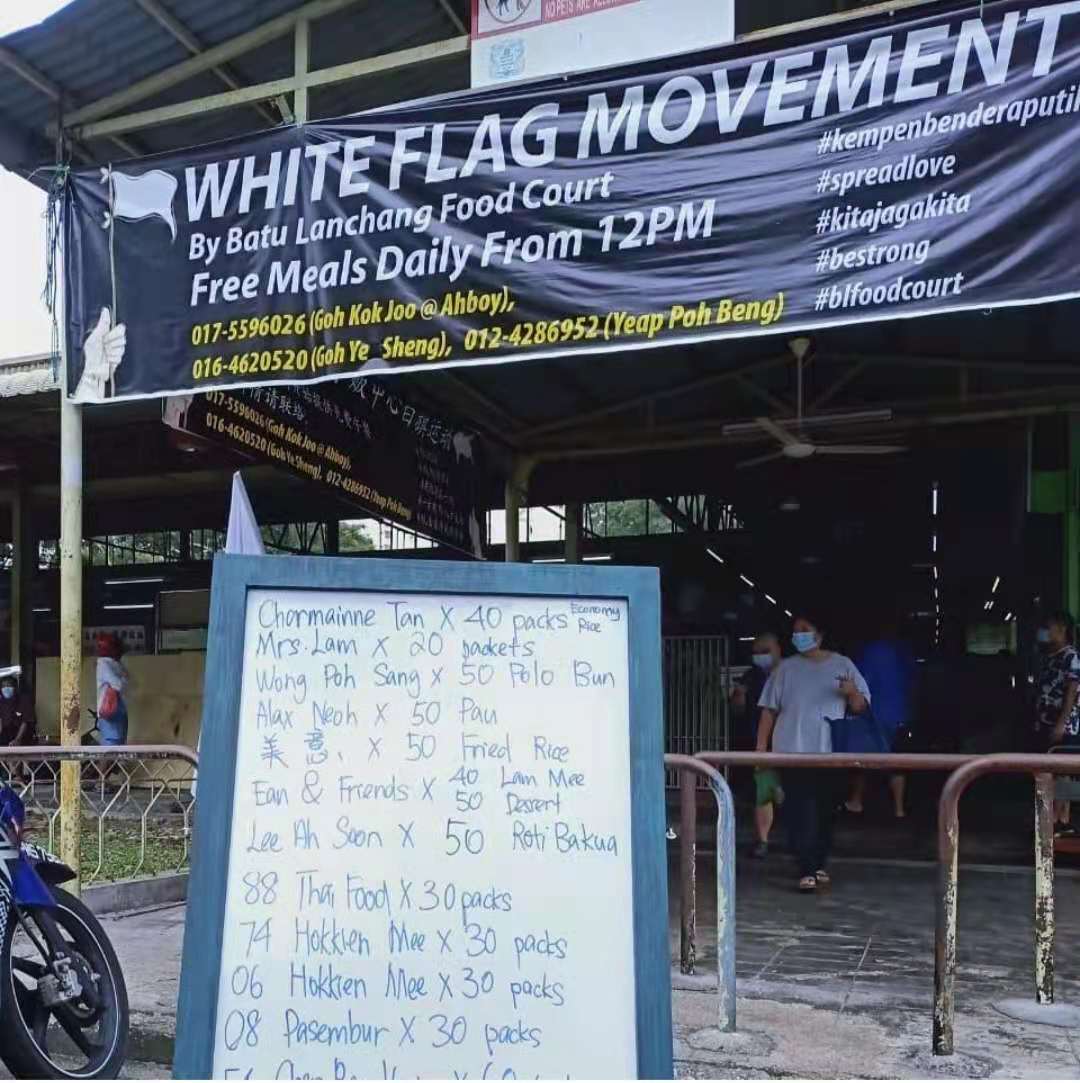 NO PETS ARE ALLOWED
WHITE FLAG MOVEMENT
By Batu Lanchang Food Court
Free Meals Daily From 12PM
017-5596026 (Goh Kok Joo @ Ahboy),
016-4620520 (Goh Ye Sheng), 012-4286952 (Yeap Poh Beng)
#kempenbenderaputih
#spreadlove
#kitajagakita
#bestrong
#blfoodcourt
017-5596026 (Goh Kok Joo @ Ahboy),
016-4620520 (Goh Ye Sheng), 012-4286952 (Yeap Poh Beng)
Charmainne Tan X 40 packs Economy Rice
Mrs. Lam X 20 packets
Wong Poh Sang X 50 Polo Bun
Alax Neoh X 50 Pau
美意 X 50 Fried Rice
Ean & Friends X 40 Lam Mee
50 Dessert
Lee Ah Soon X 50 Roti Bakua
88 Thai Food X 30 packs
74 Hokkien Mee X 30 packs
06 Hokkien Mee X 30 packs
08 Pasembur X 30 packs